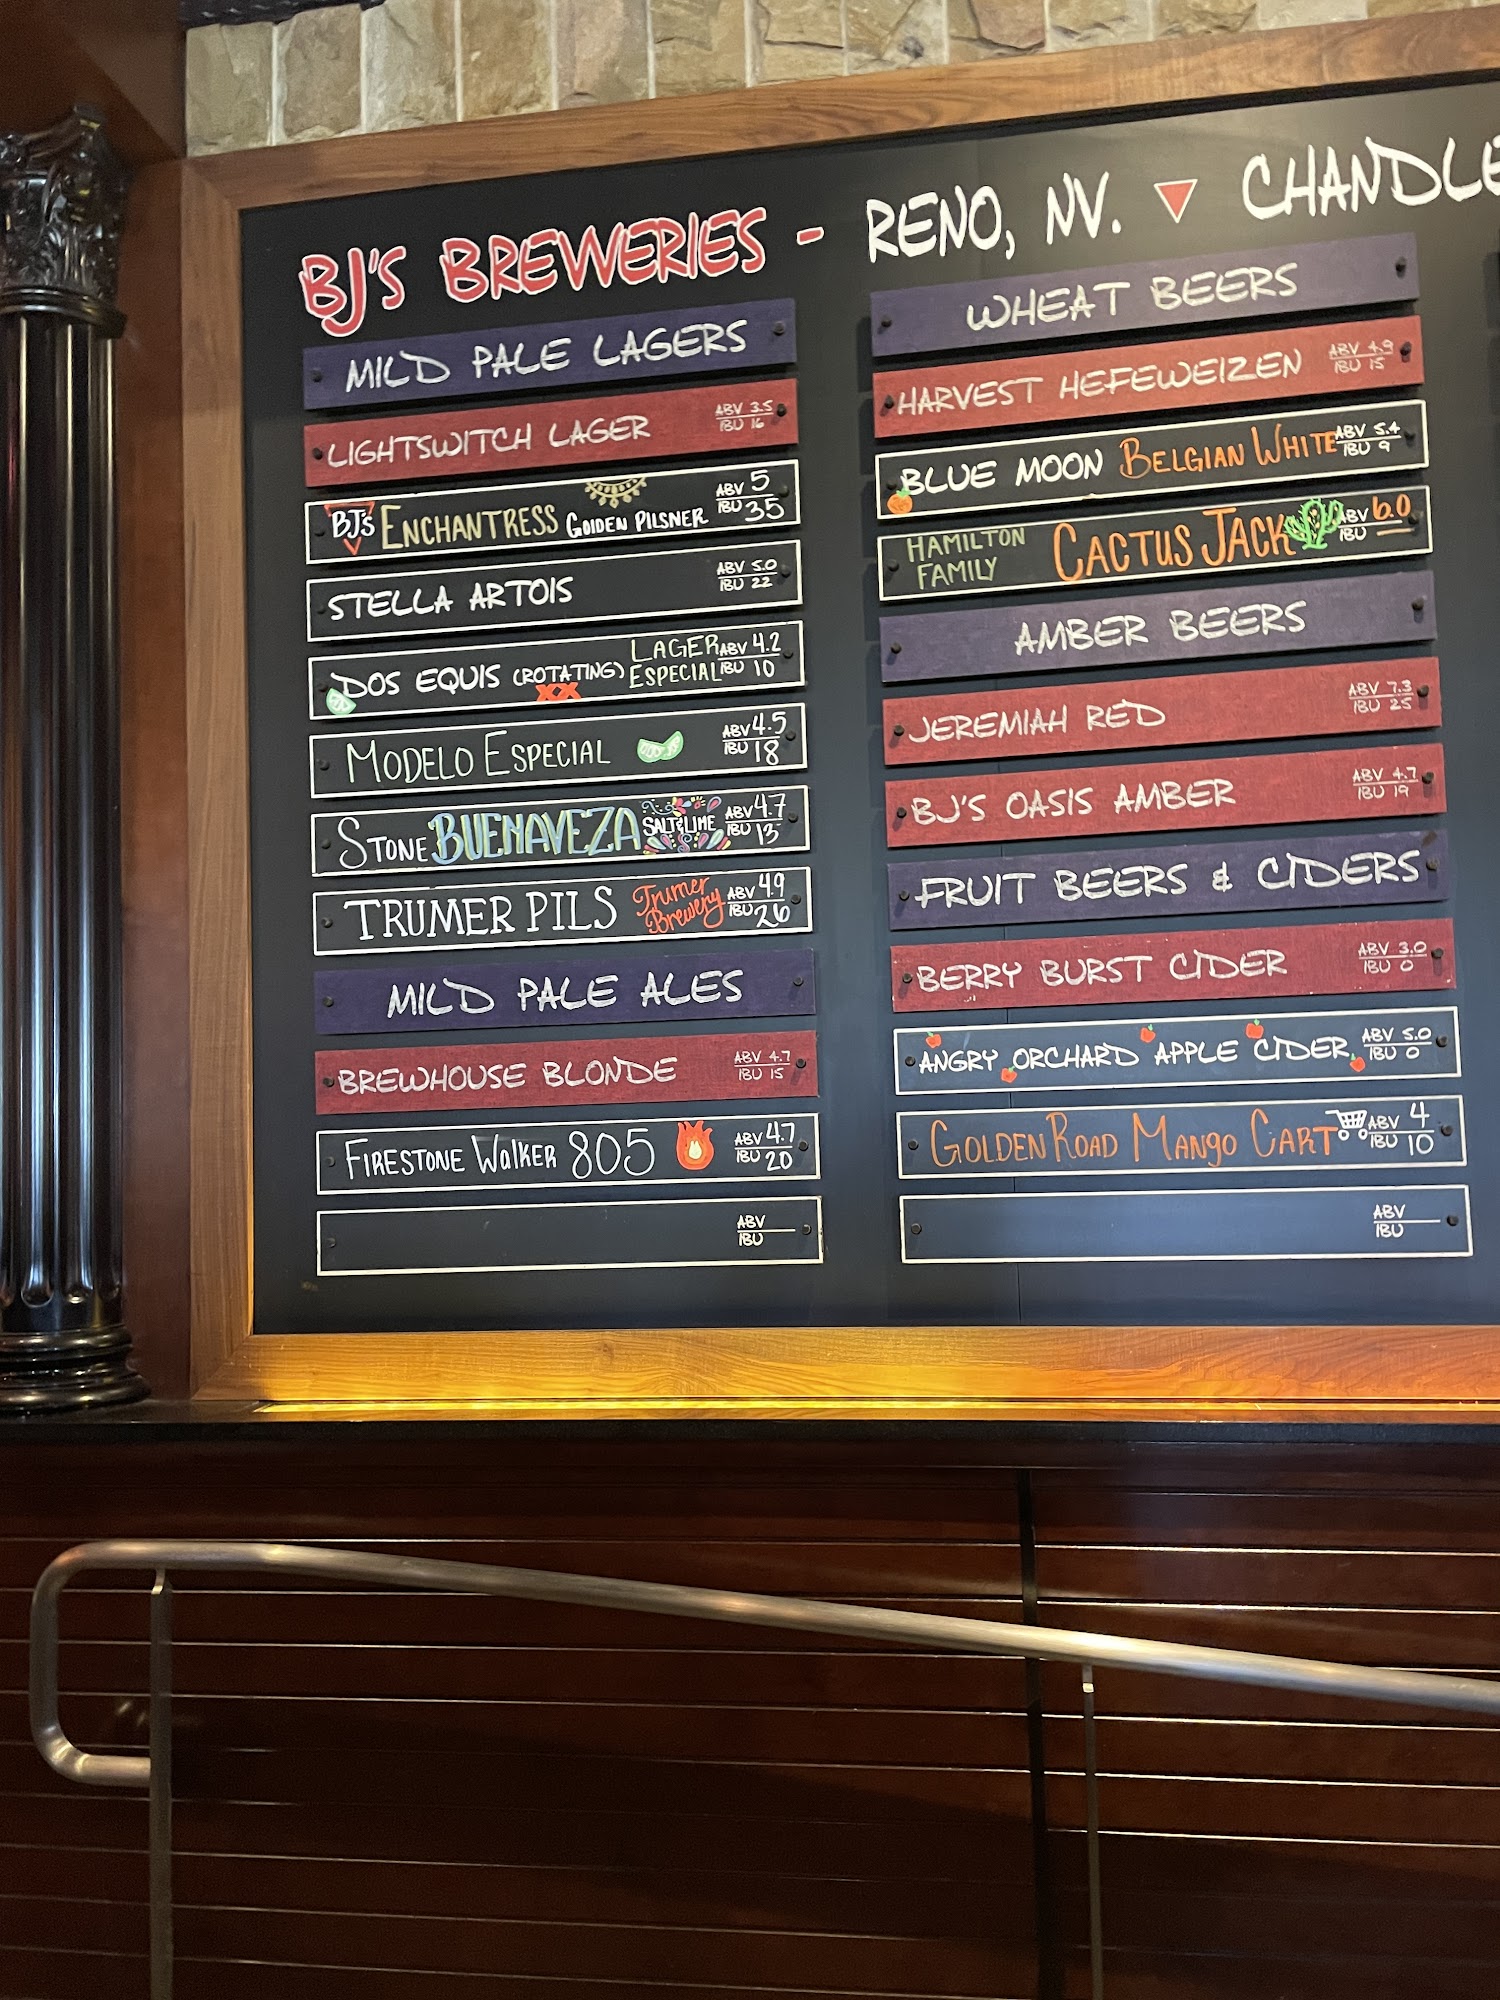 BJ'S BREWERIES - RENO, NV. CHANDLE
MILD PALE LAGERS
LIGHTSWITCH LAGER ABV 3.5 IBU 16
BJ'S ENCHANTRESS GOLDEN PILSNER ABV 5 IBU 35
STELLA ARTOIS ABV 5.0 IBU 22
DOS EQUIS (ROTATING) XX LAGER ESPECIAL ABV 4.2 IBU 10
MODELO ESPECIAL ABV 4.5 IBU 18
STONE BUENAVEZA SALT & LIME ABV 4.7 IBU 13
TRUMER PILS Trumer Brewery ABV 4.9 IBU 26
MILD PALE ALES
BREWHOUSE BLONDE ABV 4.7 IBU 15
FIRESTONE WALKER 805 ABV 4.7 IBU 20
ABV IBU
WHEAT BEERS
HARVEST HEFEWEIZEN ABV 4.9 IBU 15
BLUE MOON BELGIAN WHITE ABV 5.4 IBU 9
HAMILTON FAMILY CACTUS JACK ABV 6.0 IBU —
AMBER BEERS
JEREMIAH RED ABV 7.3 IBU 25
BJ'S OASIS AMBER ABV 4.7 IBU 19
FRUIT BEERS & CIDERS
BERRY BURST CIDER ABV 3.0 IBU 0
ANGRY ORCHARD APPLE CIDER ABV 5.0 IBU 0
GOLDEN ROAD MANGO CART ABV 4 IBU 10
ABV IBU